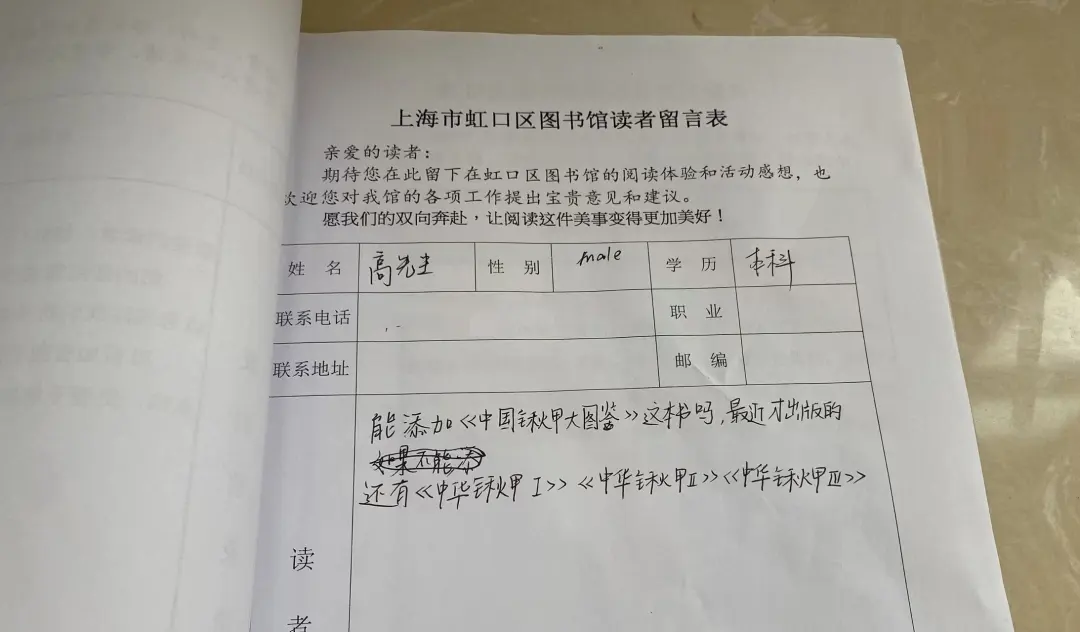 上海市虹口区图书馆读者留言表
亲爱的读者：
期待您在此留下在虹口区图书馆的阅读体验和活动感想，也
欢迎您对我馆的各项工作提出宝贵意见和建议。
愿我们的双向奔赴，让阅读这件美事变得更加美好！
姓 名 高先生 性 别 male 学 历 本科
联系电话 职 业
联系地址 邮 编
能添加《中国锹甲大图鉴》这本书吗，最近才出版的
如果不能添
还有《中华锹甲Ⅰ》《中华锹甲Ⅱ》《中华锹甲Ⅲ》
读
者